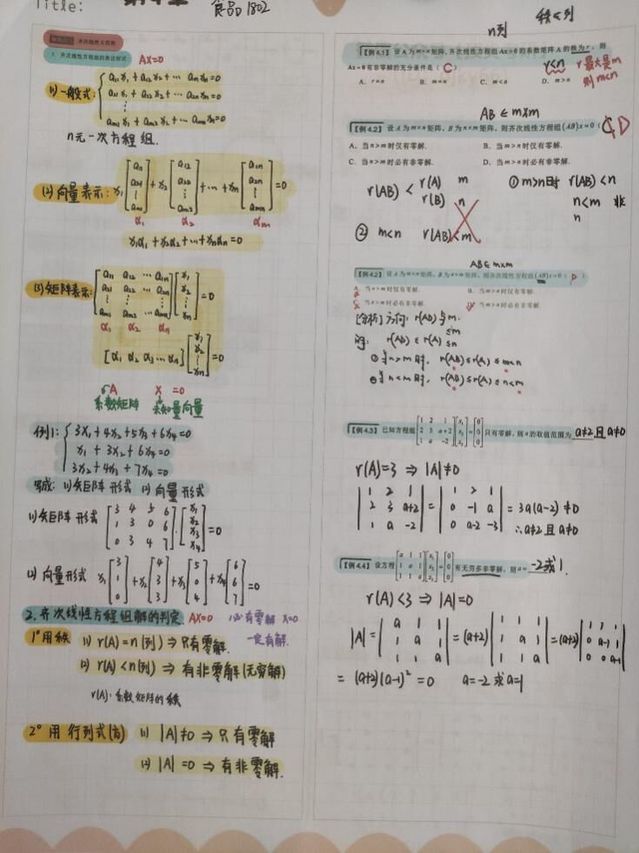 Title:
食品1802
1. 齐次线性方程组的表达形式 AX=0
(1) 一般式: { a₁₁x₁ + a₁₂x₂ + ⋯ a₁ₙxₙ=0
a₂₁x₁ + a₂₂x₂ + ⋯ a₂ₙxₙ=0
⋮
aₘ₁x₁ + aₘ₂x₂ + ⋯ aₘₙxₙ=0
n元一次方程组.
(2) 向量表示: x₁ [a₁₁ a₂₁ ⋮ aₘ₁] + x₂ [a₁₂ a₂₂ ⋮ aₘ₂] + ⋯ + xₙ [a₁ₙ a₂ₙ ⋮ aₘₙ] = 0
α₁ α₂
x₁α₁ + x₂α₂ + ⋯ + xₙαₙ = 0
(3) 矩阵表示: [a₁₁ a₁₂ ⋯ a₁ₙ; a₂₁ a₂₂ ⋯ a₂ₙ; ⋮; aₘ₁ aₘ₂ ⋯ aₘₙ] [x₁ x₂ ⋮ xₙ] = 0
α₁ α₂ αₙ
[α₁ α₂ α₃ ⋯ αₙ] [x₁ x₂ ⋮ xₙ] = 0
A X =0
系数矩阵 未知量向量
例1: { 3x₁+4x₂+5x₃+6x₄=0
x₁ + 3x₂ + 6x₄=0
3x₂+4x₃+7x₄=0
写成: (1) 矩阵形式 (2) 向量形式
(1) 矩阵形式 [3 4 5 6; 1 3 0 6; 0 3 4 7] · [x₁ x₂ x₃ x₄] = 0
(2) 向量形式 x₁ [3 1 0] + x₂ [4 3 3] + x₃ [5 0 4] + x₄ [6 6 7] = 0
2. 齐次线性方程组解的判定 AX=0 必有零解 X=0
一定有解.
1° 用秩 (1) r(A)=n(列) ⇒ 只有零解.
(2) r(A)<n(列) ⇒ 有非零解(无穷解)
r(A): 系数矩阵的秩
2° 用行列式(方) (1) |A|≠0 ⇒ 只有零解
(2) |A|=0 ⇒ 有非零解.
n列 秩≤列
【例4.1】设A为m×n矩阵, 齐次线性方程组Ax=0的系数矩阵A的秩为r, 则
Ax=0有非零解的充分条件是( C ) r<n r最大是m
A. r=n B. m=n C. m<n D. m>n 则m<n
AB ∈ m×m
【例4.2】设A为m×n矩阵, B为n×m矩阵, 则齐次线性方程组(AB)x=0( D
A. 当n>m时仅有零解. B. 当m>n时仅有零解.
C. 当n>m时必有非零解. D. 当m>n时必有非零解.
r(AB) < r(A) m ① m>n时 r(AB)<n
r(B) n n<m 非
n
② m<n r(AB)<m
AB∈m×m
【例4.2】设A为m×n矩阵, B为n×m矩阵, 则齐次线性方程组(AB)x=0( D )
A. 当n>m时仅有零解. B. 当m>n时仅有零解.
C. 当n>m时必有非零解. D. 当m>n时必有非零解.
[分析] 方向: r(AB)与m.
≤m
r(AB)≤r(A) ≤n
① 当n>m时, r(AB)≤r(A)≤m<n
② 当n<m时, r(AB)≤r(A)≤n<m
【例4.3】已知方程组 [1 2 1; 2 3 a+2; 1 a −2] [x₁ x₂ x₃] = [0 0 0] 只有零解, 则a的取值范围为 a≠2且a≠0
r(A)=3 ⇒ |A|≠0
|1 2 1; 2 3 a+2; 1 a −2| = |1 2 1; 0 −1 a; 0 a−2 −3| = 3a(a−2) ≠0
∴a≠2且a≠0
【例4.4】设方程 [a 1 1; 1 a 1; 1 1 a] [x₁ x₂ x₃] = [0 0 0] 有无穷多非零解, 则a= −2或1.
r(A)<3 ⇒ |A|=0
|A| = |a 1 1; 1 a 1; 1 1 a| = (a+2) |1 1 1; 1 a 1; 1 1 a| = (a+2) |1 1 1; 0 a−1 1; 0 0 a−1|
= (a+2)(a−1)² = 0 a=−2 或 a=1